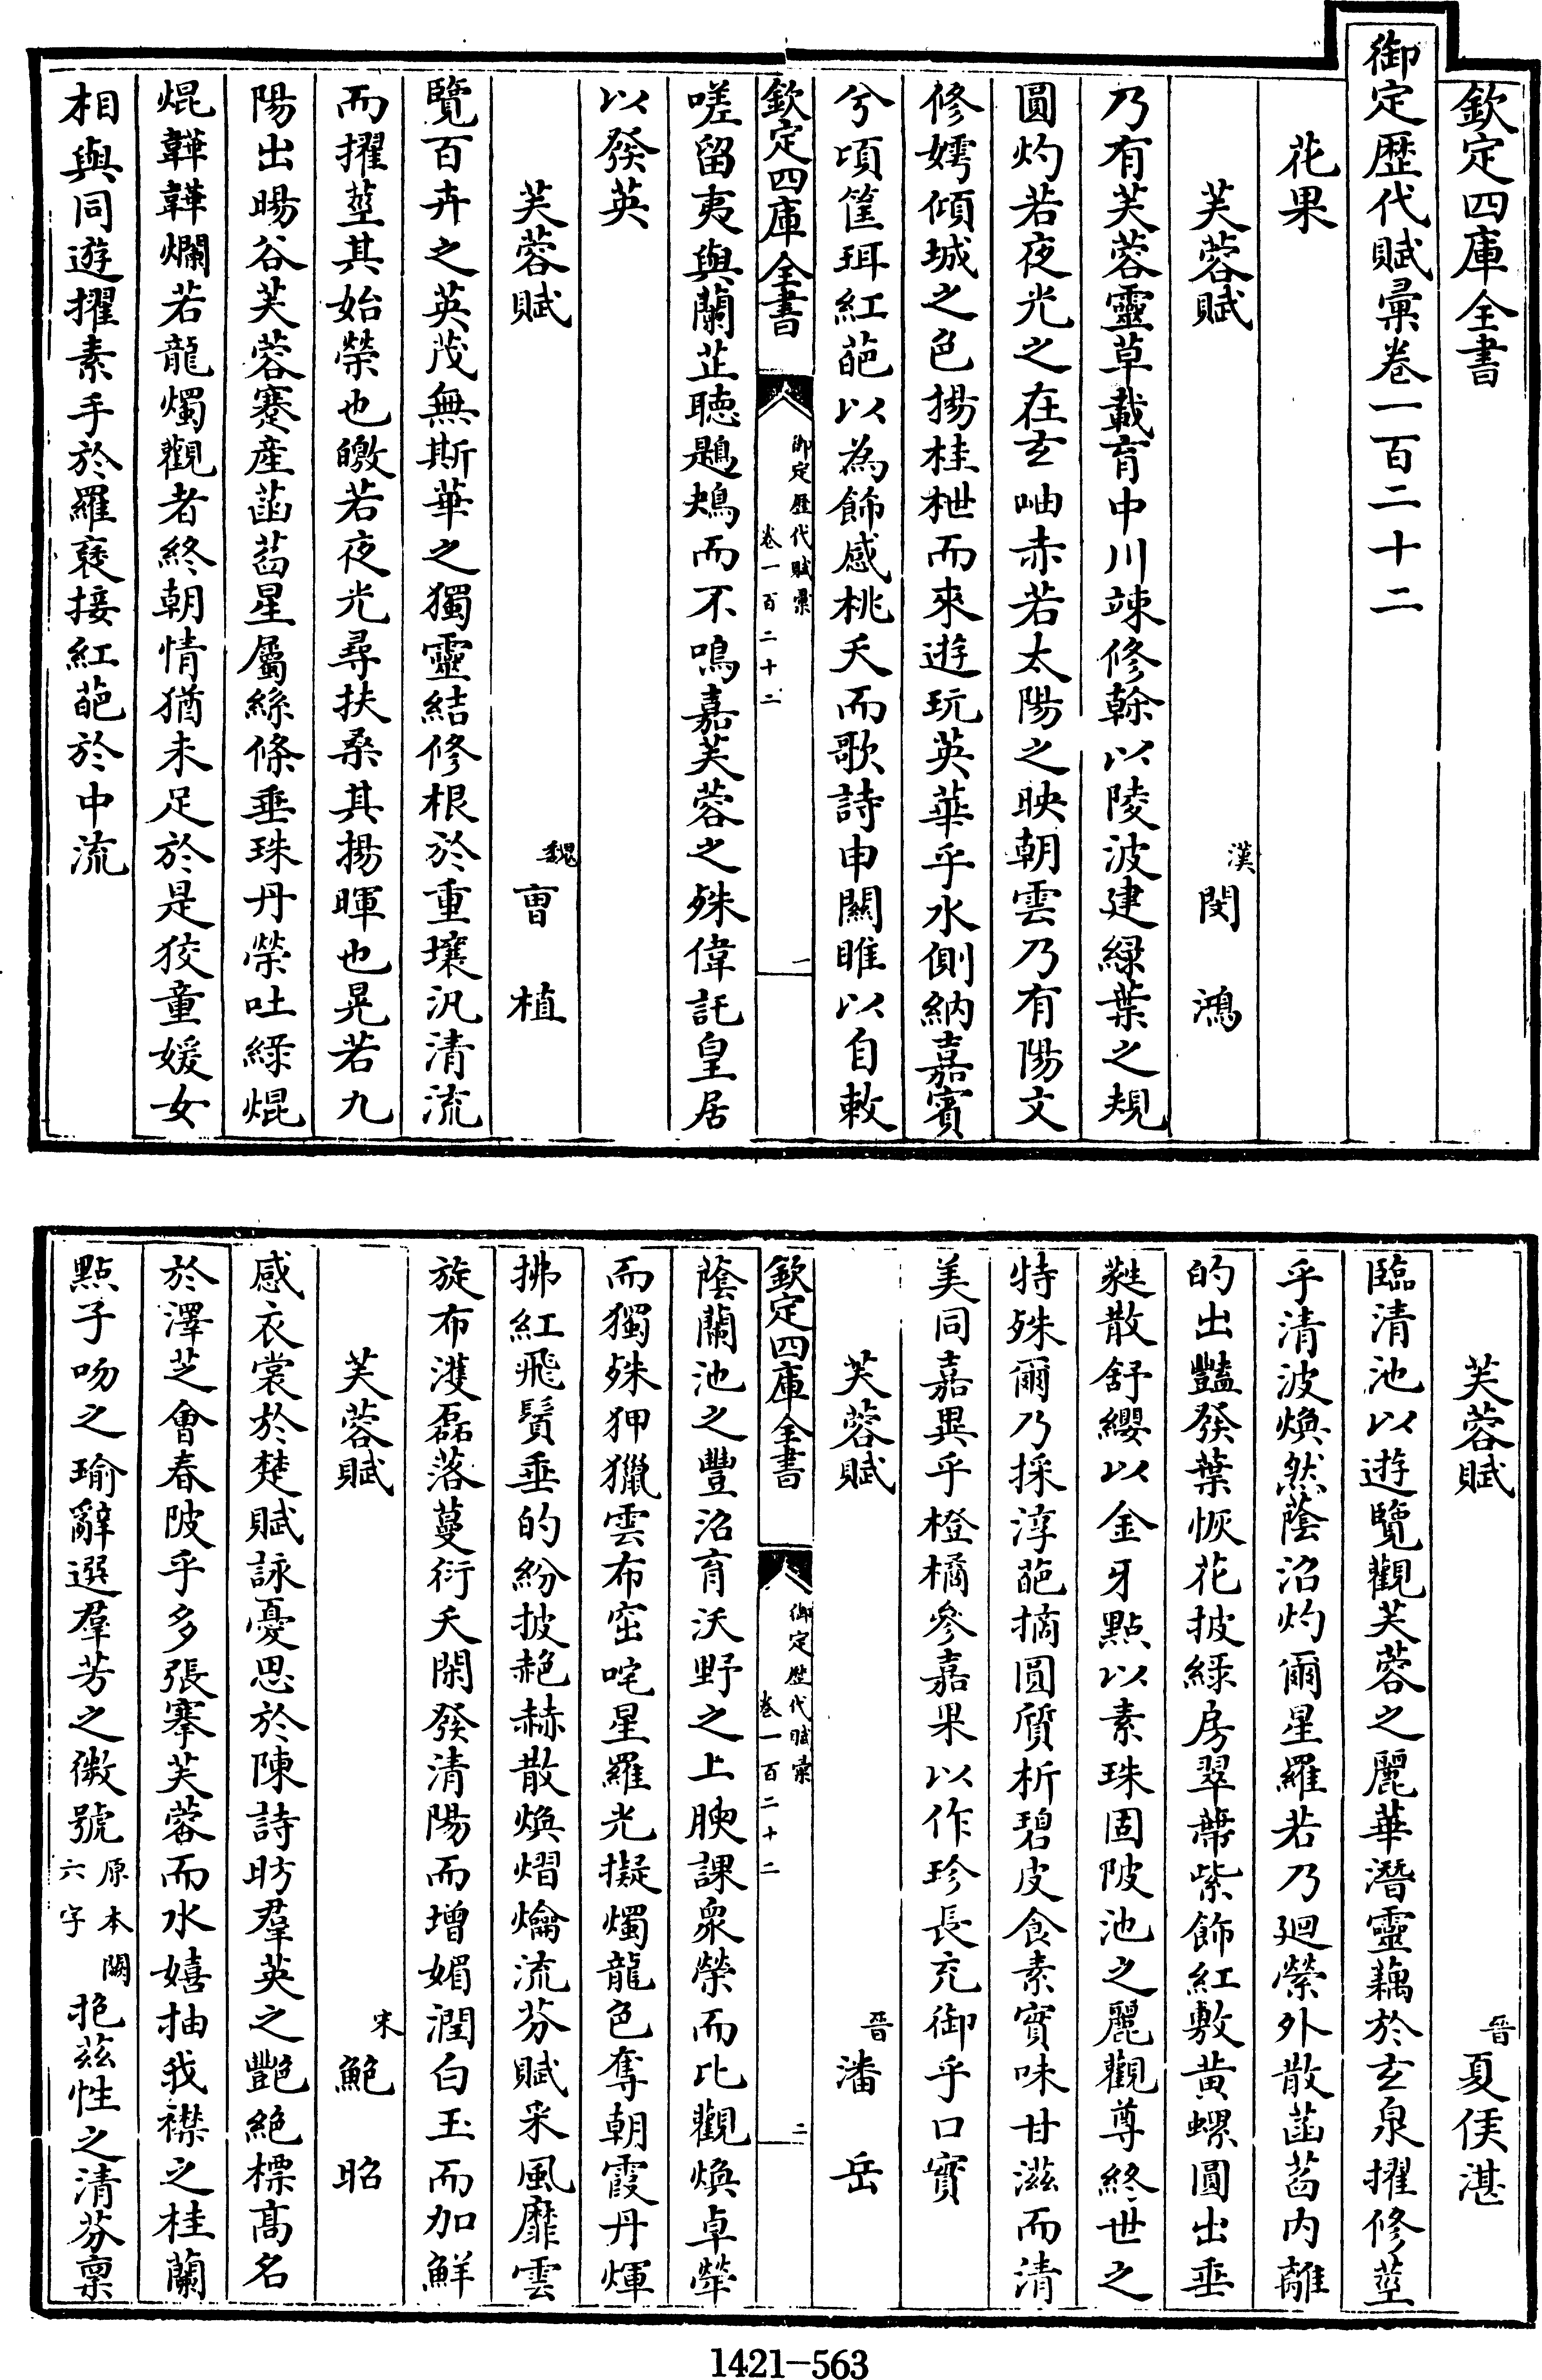 欽定四庫全書
御定歴代賦彙卷一百二十二
花果
芙蓉賦
漢閔鴻
乃有芙蓉靈草載育中川竦修幹以陵波建綠葉之規
圓灼若夜光之在玄岫赤若太陽之映朝雲乃有陽文
修嫮傾城之色揚桂枻而來遊玩英華乎水側納嘉賓
兮頃筐珥紅葩以為飾感桃夭而歌詩申關雎以自敕
欽定四庫全書
御定歴代賦彙
卷一百二十二
一
嗟留夷與蘭芷聽鶗鴂而不鳴嘉芙蓉之殊偉託皇居
以發英
芙蓉賦
魏曹植
覽百卉之英茂無斯華之獨靈結修根於重壤汎清流
而擢莖其始榮也皦若夜光尋扶桑其揚暉也晃若九
陽出暘谷芙蓉蹇產菡萏星屬絲條垂珠丹榮吐綠焜
焜韡韡爛若龍燭觀者終朝情猶未足於是狡童媛女
相與同遊擢素手於羅褎接紅葩於中流
芙蓉賦
晉夏侯湛
臨清池以遊覽觀芙蓉之麗華潛靈藕於玄泉擢修莖
乎清波煥然蔭沼灼爾星羅若乃迴縈外散菡萏内離
的出豔發葉恢花披綠房翠蔕紫飾紅敷黄螺圓出垂
蕤散舒纓以金牙點以素珠固陂池之麗觀尊終世之
特殊爾乃採淳葩摘圓質析碧皮食素實味甘滋而清
美同嘉異乎橙橘參嘉果以作珍長充御乎口實
芙蓉賦
晉潘岳
欽定四庫全書
御定歴代賦彙
卷一百二十二
二
蔭蘭池之豐沼育沃野之上腴課衆榮而比觀煥卓犖
而獨殊狎獵雲布窋咤星羅光擬燭龍色奪朝霞丹煇
拂紅飛鬢垂的紛披赩赫散煥熠爚流芬賦采風靡雲
旋布濩磊落蔓衍夭閑發清陽而增媚潤白玉而加鮮
芙蓉賦
宋鮑昭
感衣裳於楚賦詠憂思於陳詩昉羣英之艷絶標髙名
於澤芝會春陂乎多張搴芙蓉而水嬉抽我襟之桂蘭
點子吻之瑜辭選羣芳之徽號原本闕六字抱茲性之清芬稟
1421-563